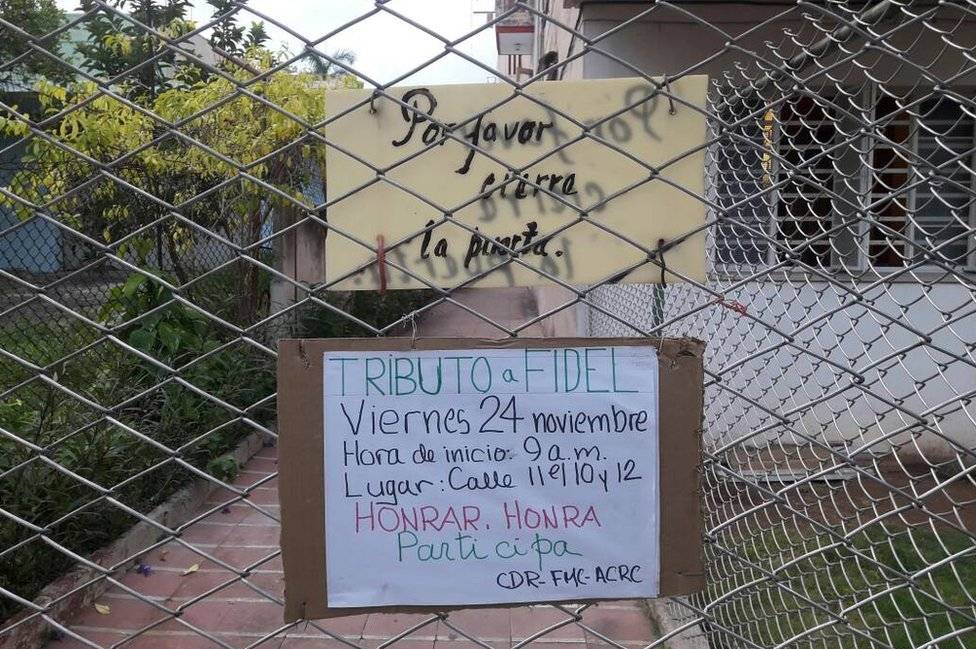 Por favor
cierra
la puerta.
TRIBUTO a FIDEL
Viernes 24 noviembre
Hora de inicio: 9 a.m.
Lugar: Calle 11 e/ 10 y 12
HONRAR. HONRA
Participa
CDR-FMC-ACRC